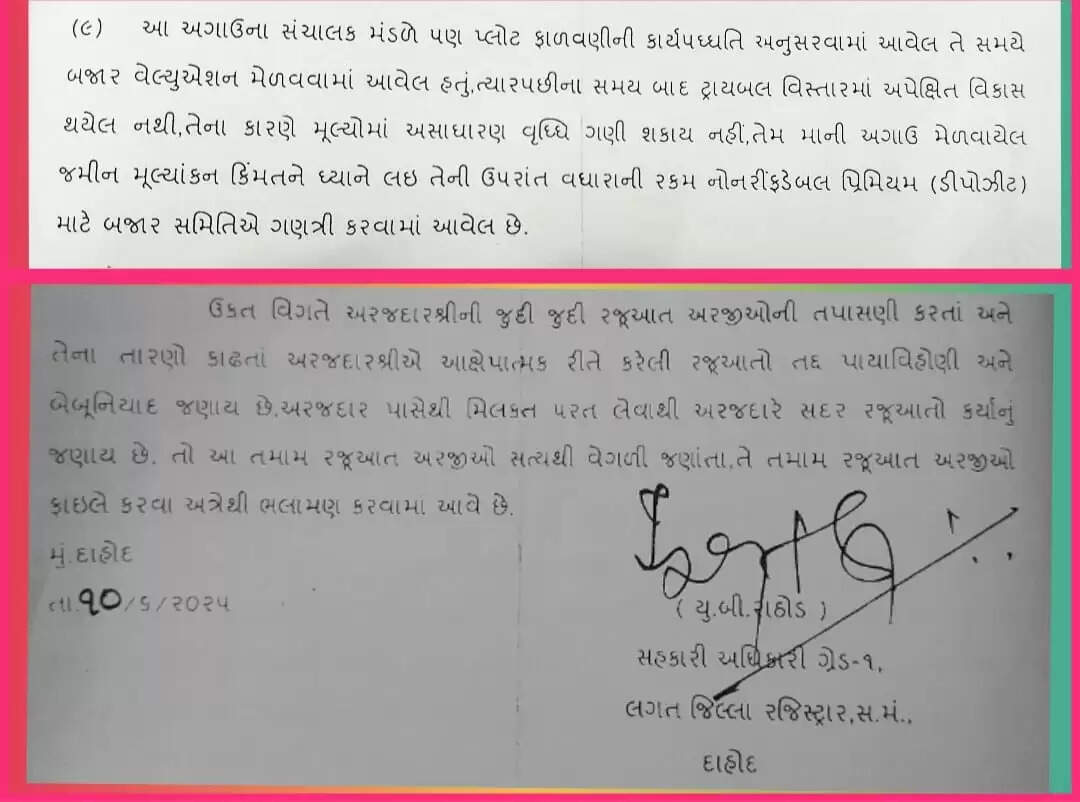 (૯) આ અગાઉના સંચાલક મંડળે પણ પ્લોટ ફાળવણીની કાર્યપધ્ધતિ અનુસરવામાં આવેલ તે સમયે
બજાર વેલ્યુએશન મેળવવામાં આવેલ હતું,ત્યારપછીના સમય બાદ ટ્રાયબલ વિસ્તારમાં અપેક્ષિત વિકાસ
થયેલ નથી,તેના કારણે મૂલ્યોમાં અસાધારણ વૃધ્ધિ ગણી શકાય નહીં,તેમ માની અગાઉ મેળવાયેલ
જમીન મૂલ્યાંકન કિંમતને ધ્યાને લઇ તેની ઉપરાંત વધારાની રકમ નોનરીંફડેબલ પ્રિમિયમ (ડીપોઝીટ)
માટે બજાર સમિતિએ ગણત્રી કરવામાં આવેલ છે.
ઉકત વિગતે અરજદારશ્રીની જુદી જુદી રજૂઆત અરજીઓની તપાસણી કરતાં અને
તેના તારણો કાઢતાં અરજદારશ્રીએ આક્ષેપાત્મક રીતે કરેલી રજૂઆતો તદ્દ પાયાવિહોણી અને
બેબૂનિયાદ જણાય છે.અરજદાર પાસેથી મિલકત પરત લેવાથી અરજદારે સદર રજૂઆતો કર્યાનું
જણાય છે. તો આ તમામ રજૂઆત અરજીઓ સત્યથી વેગળી જણાંતા,તે તમામ રજૂઆત અરજીઓ
ફાઇલે કરવા અત્રેથી ભલામણ કરવામા આવે છે.
મું.દાહોદ
તા.૧૦/૬/૨૦૨૫
( યુ.બી.રાઠોડ )
સહકારી અધિકારી ગ્રેડ-૧,
લગત જિલ્લા રજિસ્ટ્રાર,સ.મં.,
દાહોદ